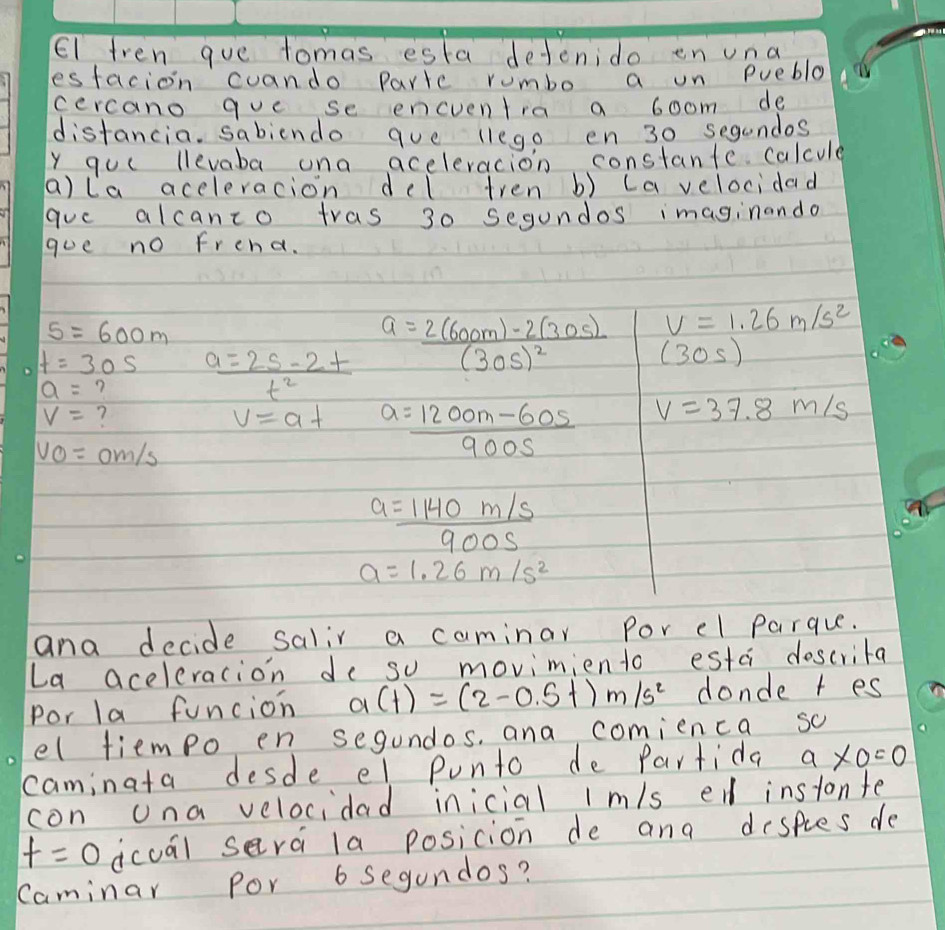 El tren que tomas esta detenido en una
estación cuando Parte rumbo a un Pueblo
cercano que se encuentra a 600m de
distancia. sabiendo que llego en 30 segundos
Y que llevaba una aceleración constante. calcule
a) La aceleración del tren b) La velocidad
que alcanzo tras 30 segundos imaginando
que no Frena.
S = 600m
t = 30s
a = ?
V = ?
V0 = 0m/s
a = 2s - 2t / t²
V = at
a = 2(600m) - 2(30s) / (30s)²
a = 1200m - 60s / 900s
a = 1140 m/s / 900s
a = 1.26 m/s²
V = 1.26 m/s²
(30s)
V = 37.8 m/s
ana decide salir a caminar Por el Parque.
La aceleración de su movimiento está descrita
Por la función a(t) = (2 - 0.5t) m/s² donde t es
el tiempo en segundos. ana comienza su
caminata desde el Punto de Partida a x0=0
con una velocidad inicial 1 m/s en instante
t = 0 ¿cuál será la posición de ana despues de
caminar Por 6 segundos?